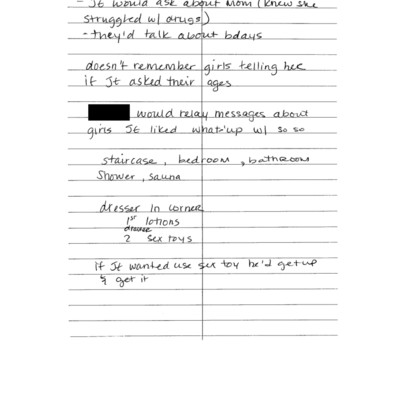 - JE would ask about Mom (knew she
struggled w/ drugs)
- they'd talk about bdays
doesn't remember girls telling her
if JE asked their ages
would relay messages about
girls JE liked what's up w/ so so
staircase, bedroom, bathroom
shower, sauna
dresser in corner
1st lotions
drawer
2 sex toys
if JE wanted use sex toy he'd get up
& get it